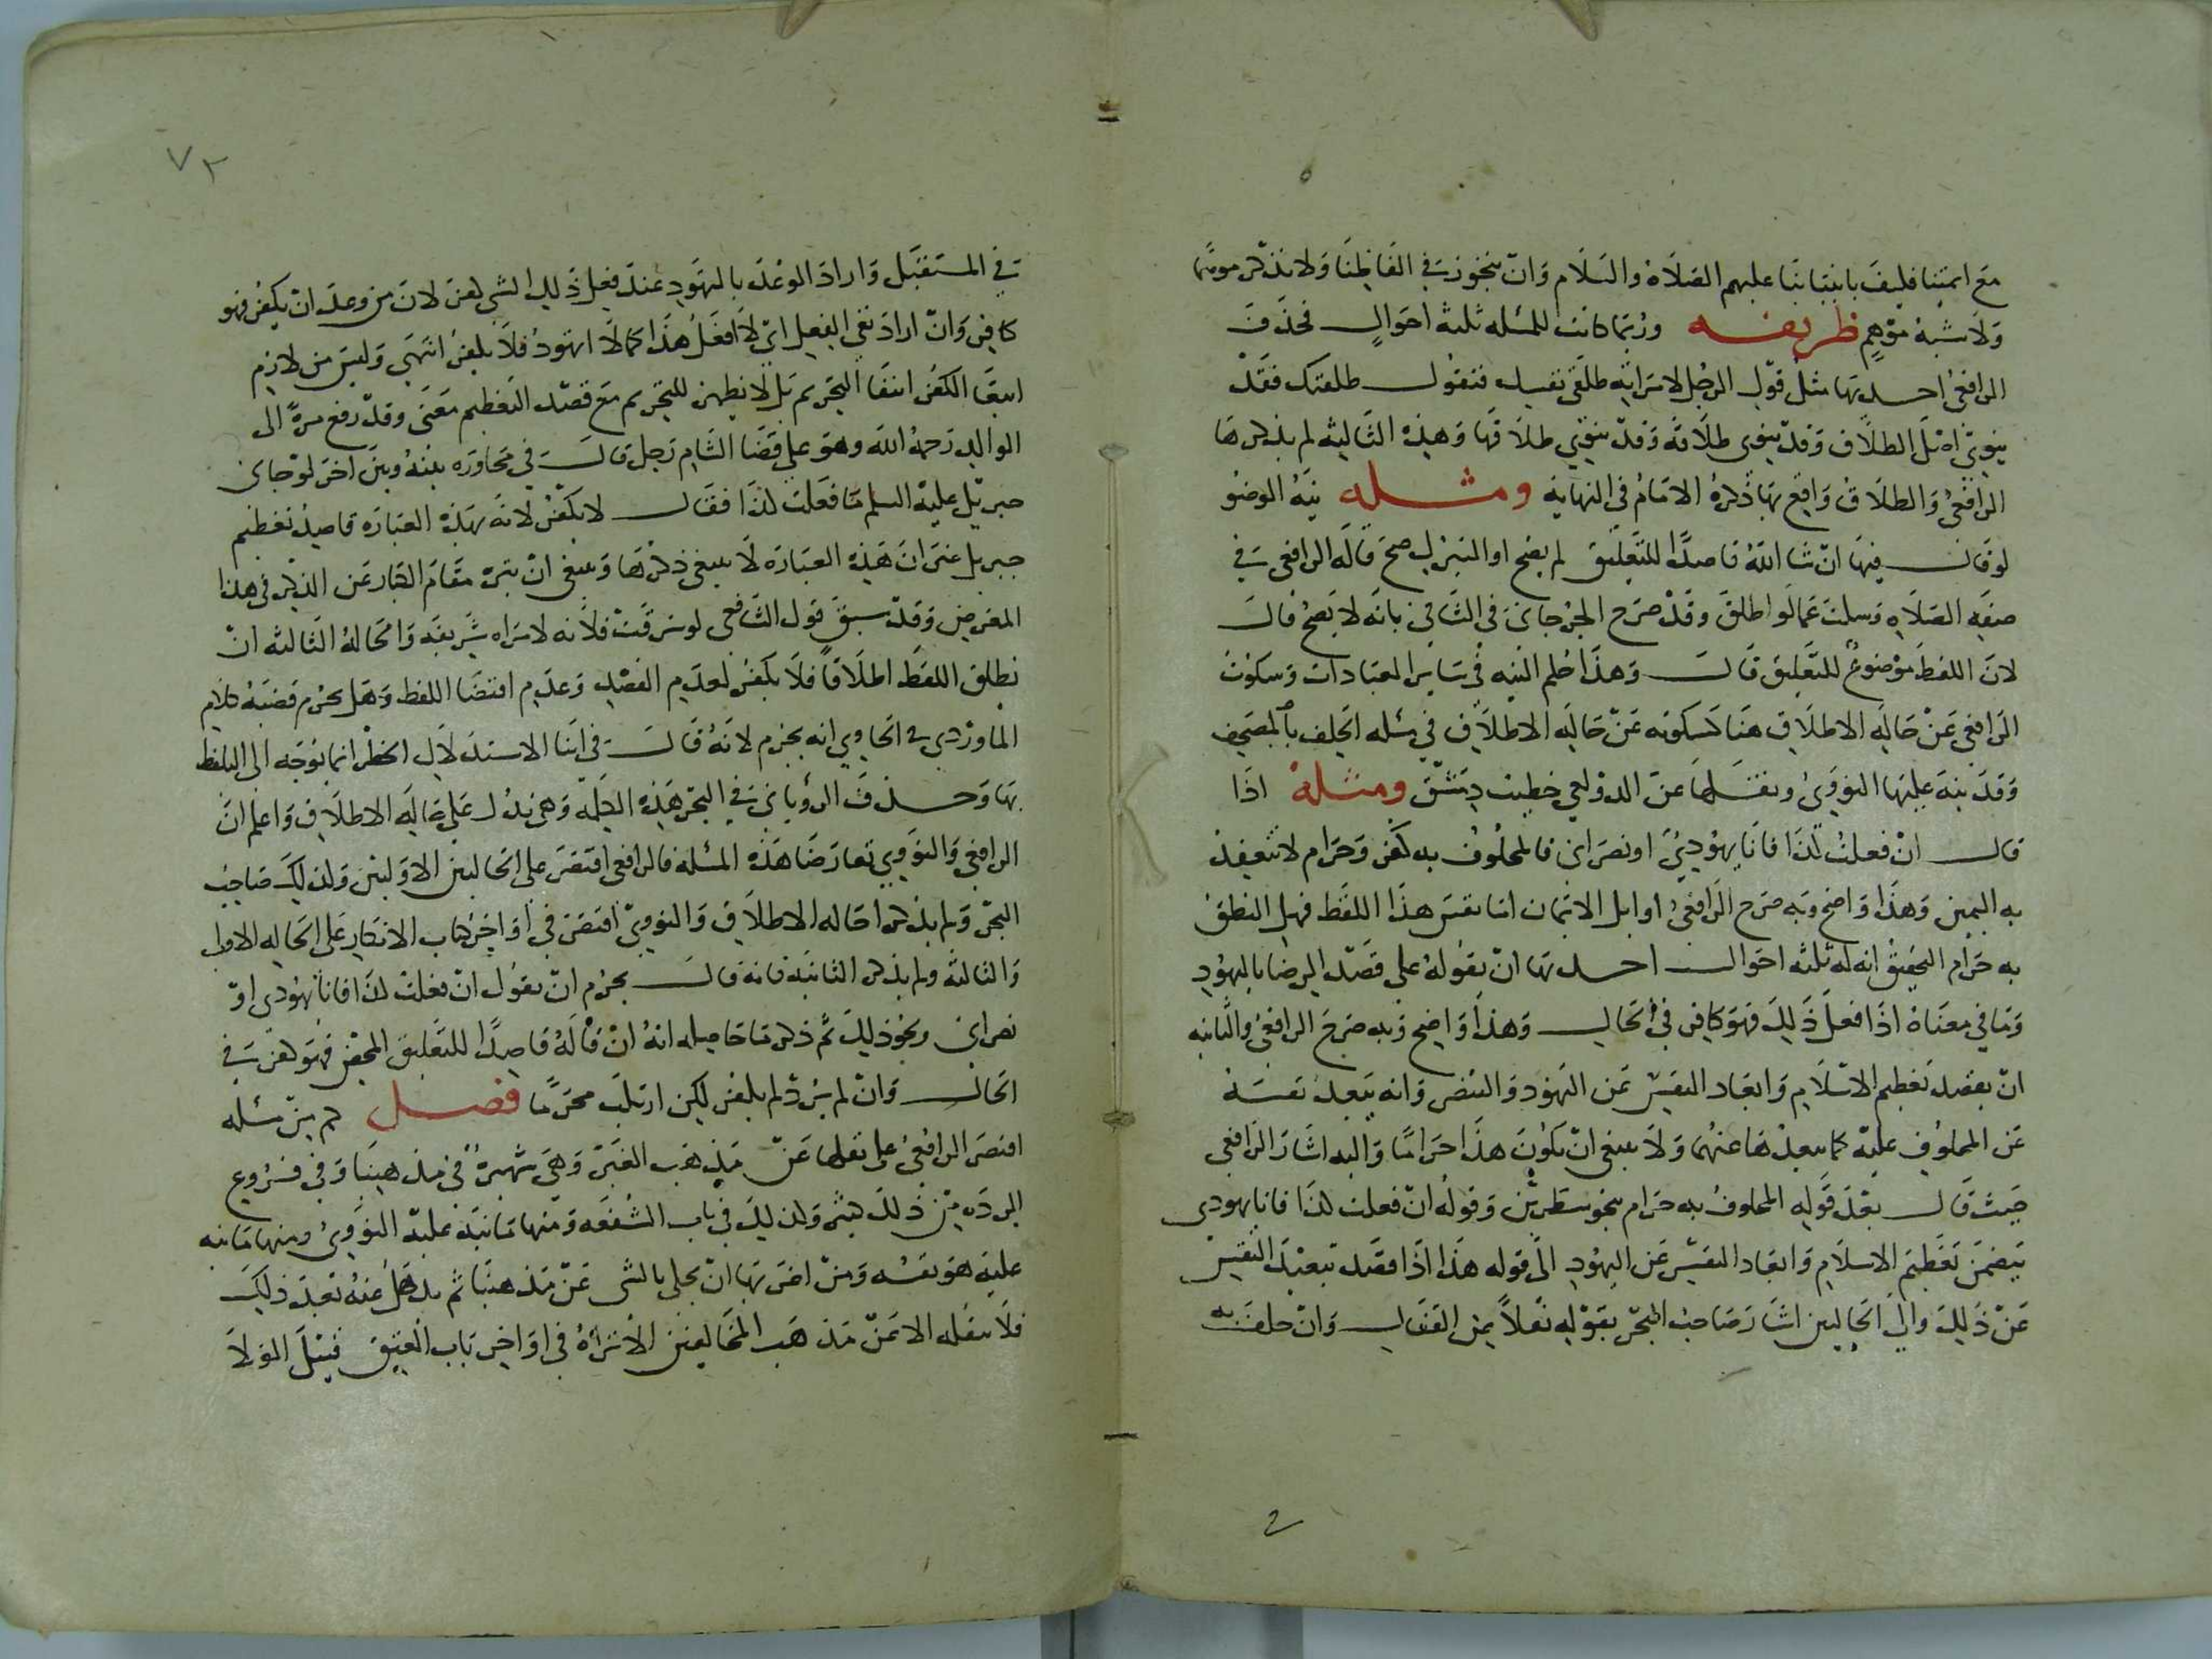 مع ايمتنا فكيف بانبيائنا عليهم الصلاة والسلام وان نتحوز في الفاظنا ولا نذكر موهما
ولا شبه موهم طريفه وربما كانت للمسله ثلثه احوال فحذف
الرافعي احديها مثل قول الرجل لامراته طلقي نفسك فتقول طلقتك فقد
ينوي اصل الطلاق وقد ينوي طلاقه وقد ينوي طلاقها وهذه الثالثه لم يذكرها
الرافعي والطلاق واقع بها ذكره الامام في النهاية ومثله نية الوضو
لو قال فيها ان شا الله قاصدا للتعليق لم يصح او التبرك صح قاله الرافعي في
صفه الصلاه وسكت عما لو اطلق وقد صرح الجرجاني في الشافي بانه لا يصح قال
لان اللفظ موضوع للتعليق قال وهذا حكم النيه في ساير العبادات وسكوت
الرافعي عن حاله الاطلاق هنا كسكوته عن حاله الاطلاق في مسله الحلف بالمصحف
وقد نبه عليها النووي ونقلها عن الدولعي خطيب دمشق ومثله اذا
قال ان فعلت كذا فانا يهودي او نصراني فالمحلوف به كفر وحرام لا تنعقد
به اليمين وهذا واضح وبه صرح الرافعي اوايل الايمان اما نفس هذا اللفظ فهل النطق
به حرام التحقيق انه له ثلثه احوال احديها ان يقوله على قصد الرضا باليهود
وما في معناه اذا فعل ذلك فهو كافر في الحال وهذا واضح وبه صرح الرافعي والثانيه
ان يقصد تعظيم الاسلام وابعاد النفس عن التهود والتنصر وانه يبعد نفسه
عن المحلوف عليه كما يبعدها عنهما ولا ينبغي ان يكون هذا حراما واليه اشار الرافعي
حيث قال بعد قوله المحلوف به حرام بنحو سطرين وقوله ان فعلت كذا فانا يهودي
يتضمن تعظيم الاسلام وابعاد النفس عن اليهود الى قوله هذا اذا قصد تبعيد النفس
عن ذلك والى الحالين اشار صاحب البحر بقوله نقلا عن القفال وان حلف به
٧٢
في المستقبل واراد الوعد بالتهود عند فعل ذلك الشي كفر لان من وعد ان يكفر فهو
كافر وان اراد نفي الفعل اي لا افعل هذا كما لا اتهود فلا يكفر انتهى وليس من لازم
انتفا الكفر انتفا التحريم بل لا يظهر للتحريم مع قصد التعظيم معنى وقد رفع مرة الى
الوالد رحمه الله وهو على قضا الشام رجل قال في محاوره بينه وبين اخر لو جاني
جبريل عليه السلم ما فعلت كذا فقال لا يكفر لانه بهذه العباره قاصد تعظيم
جبريل غير ان هذه العباره لا ينبغي ذكرها وينبغي ان ينزه مقام الكبار عن الذكر في هذا
المعرض وقد سبق قول الشافعي لو سرقت فلانه لامراه شريفه والحاله الثالثه ان
يطلق اللفظ اطلاقا فلا يكفر لعدم القصد وعدم اقتضا اللفظ وهل يحرم قضيه كلام
الماوردي في الحاوي انه يحرم لانه قال في اثنا الاستدلال الحظر انما توجه الى التلفظ
بها وحذف الروياني في البحر هذه الكلمه وهي تدل على حاله الاطلاق واعلم ان
الرافعي والنووي تعارضا هذه المسله فالرافعي اقتصر على الحالين الاوليين وكذلك صاحب
البحر ولم يذكرا حاله الاطلاق والنووي اقتصر في اواخر كتاب الاذكار على الحاله الاولى
والثالثه ولم يذكر الثانيه فانه قال يحرم ان يقول ان فعلت كذا فانا يهودي او
نصراني ونحو ذلك ثم ذكر ما حاصله انه ان قاله قاصدا للتعليق المحض فهو كفر في
الحال وان لم يرد لم يكفر لكن ارتكب محرما فصل كم من مسله
اقتصر الرافعي على نقلها عن مذهب الغير وهي شهيرة في مذهبنا وفي فروع
الرده من ذلك كثير وكذلك في باب الشفعه ومنها ما نبه عليه النووي ومنها ما نبه
عليه هو نفسه ومن اغربها ان يحكي بالشي عن مذهبنا ثم يذهل عنه بعد ذلك
فلا ينقله الا عن مذهب المخالفين الا تراه في اواخر باب العتق قبيل الولا